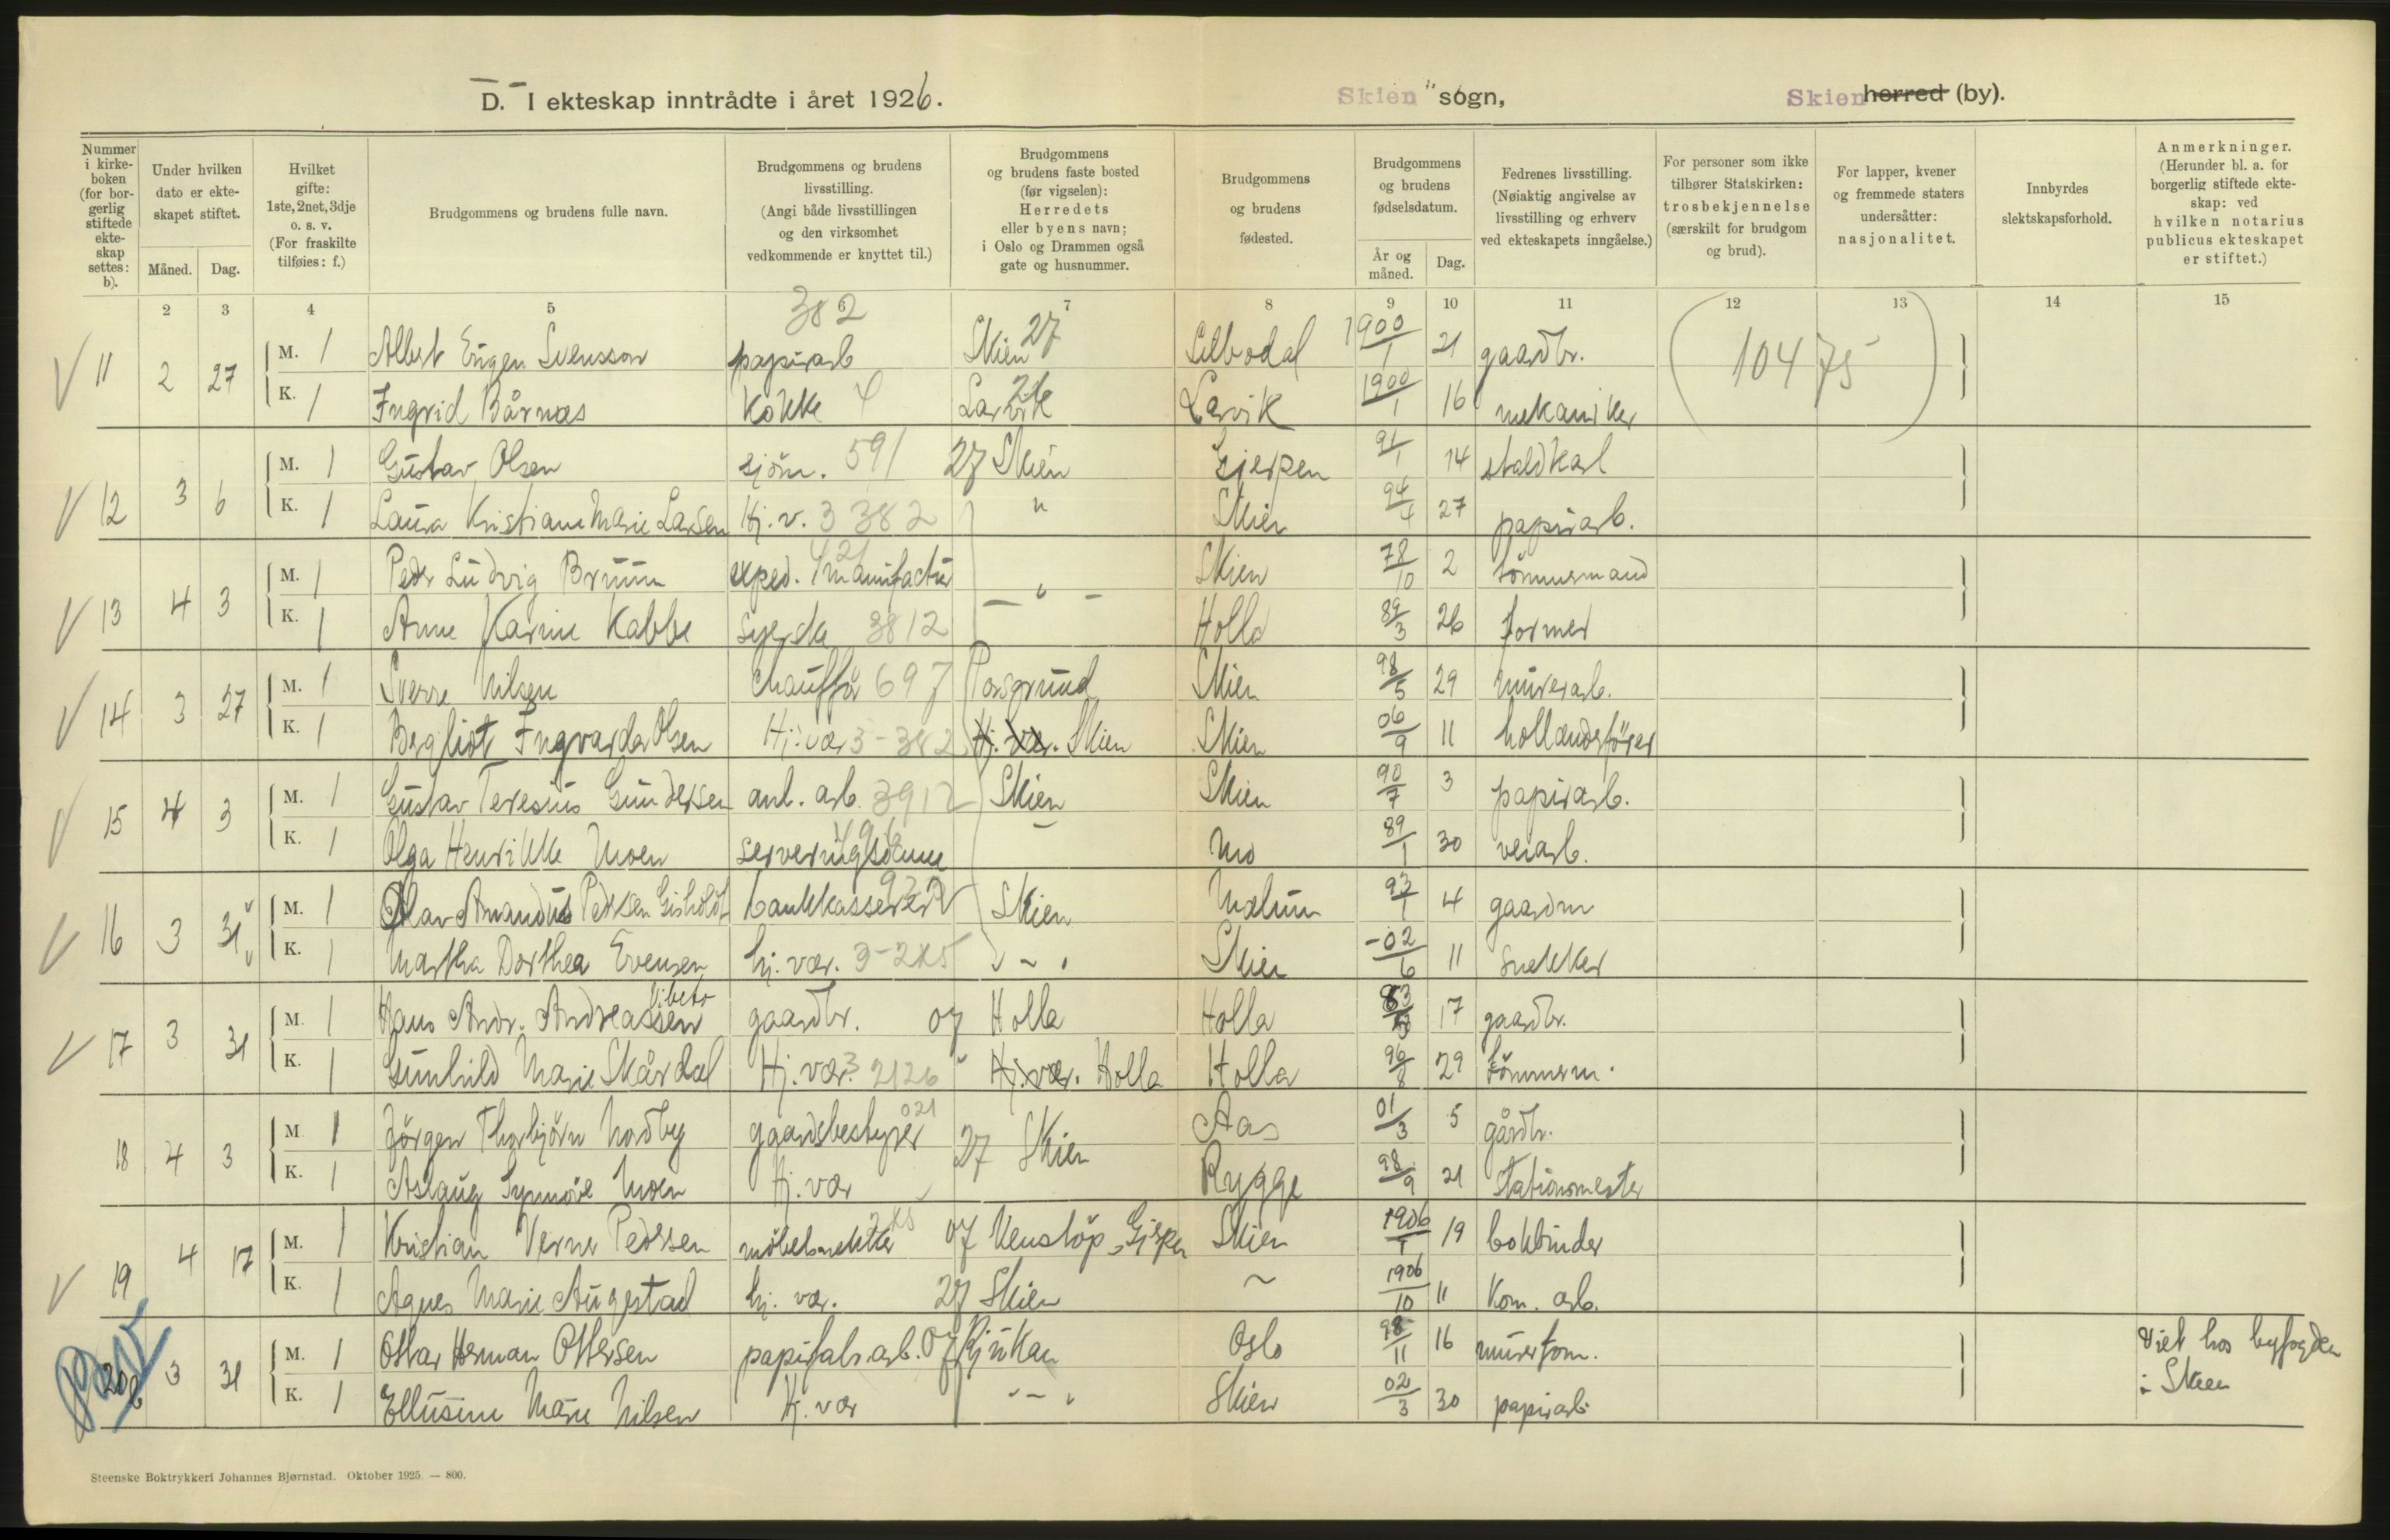 D. I ekteskap inntrådte i året 1926. Skien sogn, Skien herred (by).
Nummer i kirkeboken (for borgerlig stiftede ekteskap settes: b).
Under hvilken dato er ekteskapet stiftet.
Måned. Dag.
Hvilket gifte: 1ste, 2net, 3dje o. s. v. (For fraskilte tilføies: f.)
Brudgommens og brudens fulle navn.
Brudgommens og brudens livsstilling. (Angi både livsstillingen og den virksomhet vedkommende er knyttet til.)
Brudgommens og brudens faste bosted (før vigselen): Herredets eller byens navn; i Oslo og Drammen også gate og husnummer.
Brudgommens og brudens fødested.
Brudgommens og brudens fødselsdatum.
År og måned. Dag.
Fedrenes livsstilling. (Nøiaktig angivelse av livsstilling og erhverv ved ekteskapets inngåelse.)
For personer som ikke tilhører Statskirken: trosbekjennelse (særskilt for brudgom og brud).
For lapper, kvener og fremmede staters undersåtter: nasjonalitet.
Innbyrdes slektskapsforhold.
Anmerkninger. (Herunder bl. a. for borgerlig stiftede ekteskap: ved hvilken notarius publicus ekteskapet er stiftet.)
2 3 4 5 6 7 8 9 10 11 12 13 14 15
382 27
11 2 27 M. 1 Albert Eugen Svensson papirarb Skien Silbodal 1900/1 21 gaardbr. (10475)
K. 1 Ingrid Bårnæs Kokke 4 Larvik Larvik 1900/1 16 mekaniker
12 3 6 M. 1 Gustav Olsen sjöm. 591 27 Skien Gjerpen 91/1 14 staldkarl
K. 1 Laura Kristiane Marie Larsen Hj. v. 3 382 " Skien 94/4 27 papirarb.
13 4 3 M. 1 Peder Ludvig Bruun exped. i manufactur - " - Skien 78/10 2 tömmermand
K. 1 Anne Karine Kabbe syerske 3812 Holla 89/3 26 former
14 3 27 M. 1 Sverre Nilsen chauffør 697 Porsgrund Skien 98/5 29 murerarb.
K. 1 Bergliot Ingvarda Olsen Hj. vær 3-382 Hj. vær. Skien Skien 06/9 11 hollænderfører
15 4 3 M. 1 Gustav Teresius Gundersen anl. arb. 3912 Skien Skien 90/7 3 papirarb.
K. 1 Olga Henrikke Moen serveringsdame - Mo 89/1 30 veiarb.
16 3 31 M. 1 Olav Amandus Pedersen Gisholdt bankkasserer Skien Mælum 93/1 4 gaardm
K. 1 Martha Dorthea Evensen hj. vær. 3-285 - " Skien -02/6 11 snekker
17 3 31 M. 1 Hans Andr. Andreassen Vibeto gaardbr. 07 Holla Holla 83 17 gaardbr.
K. 1 Gunhild Marie Skårdal Hj. vær. 3 2126 Hj. vær. Holla Holla 96/8 29 tömmerm.
18 4 3 M. 1 Jörgen Thorbjörn Nordby gaardsbestyrer 021 27 Skien Aas 01/3 5 gårdbr.
K. 1 Aslaug Synnöve Moen Hj. vær Rygge 98/9 21 Stationsmester
19 4 17 M. 1 Kristian Verner Pedersen möbelsnekker 285 07 Venstöp, Gjerpen Skien 1906/1 19 bokbinder
K. 1 Agnes Marie Augestad hj. vær. 27 Skien ~ 1906/10 11 Kom. arb.
20 b 3 31 M. 1 Ottar Herman Ottersen papirfabr. arb. 07 Rjukan Oslo 98/11 16 murerform. Viet hos byfogden
K. 1 Ellusine Marie Nilsen Hj. vær - " Skien 02/3 30 papirarb. i Skien
Steenske Boktrykkeri Johannes Bjørnstad. Oktober 1925. — 800.